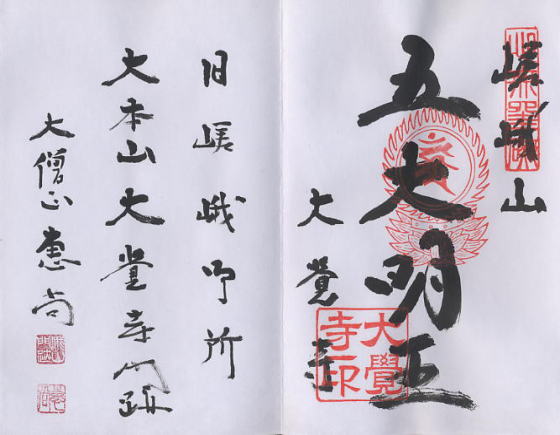 嵯峨山
五大明王
大覚寺
大覺寺印
旧嵯峨御所
大本山大覚寺門跡
大僧正恵尚